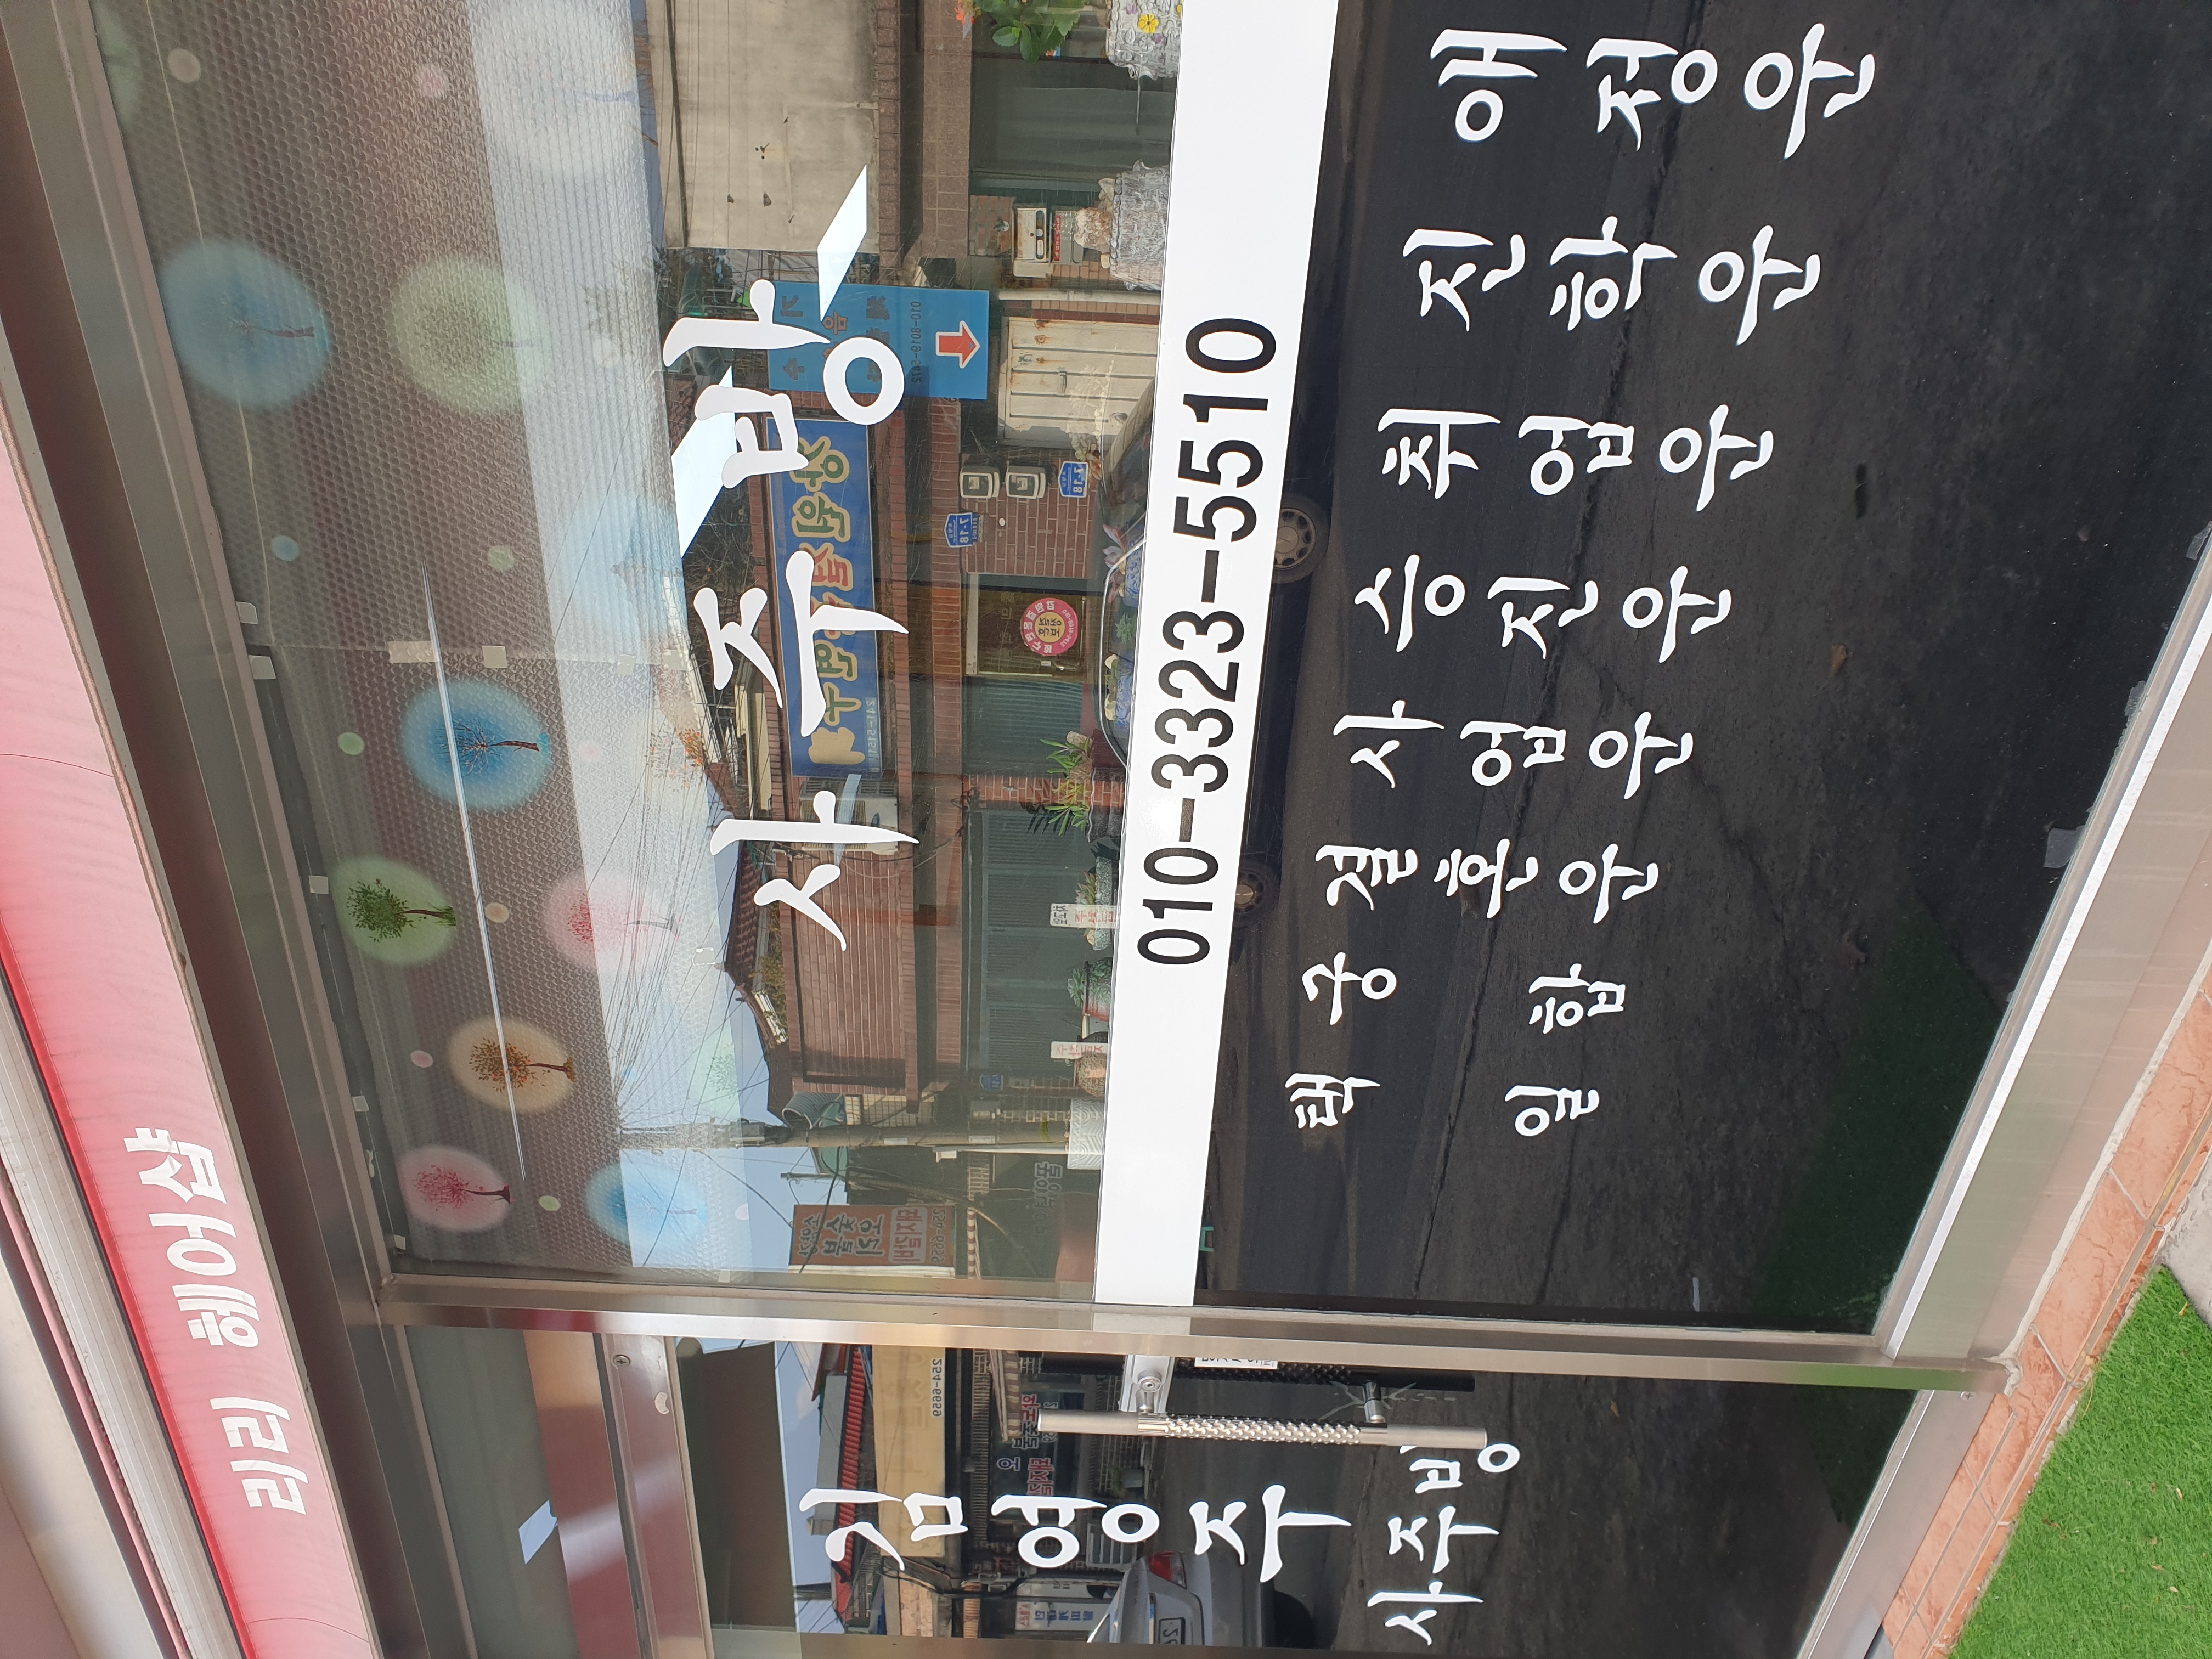 리리 헤어샵
사주방
010-3323-5510
김영주
사주방
택일
궁합
결혼운
사업운
승진운
취업운
진학운
애정운